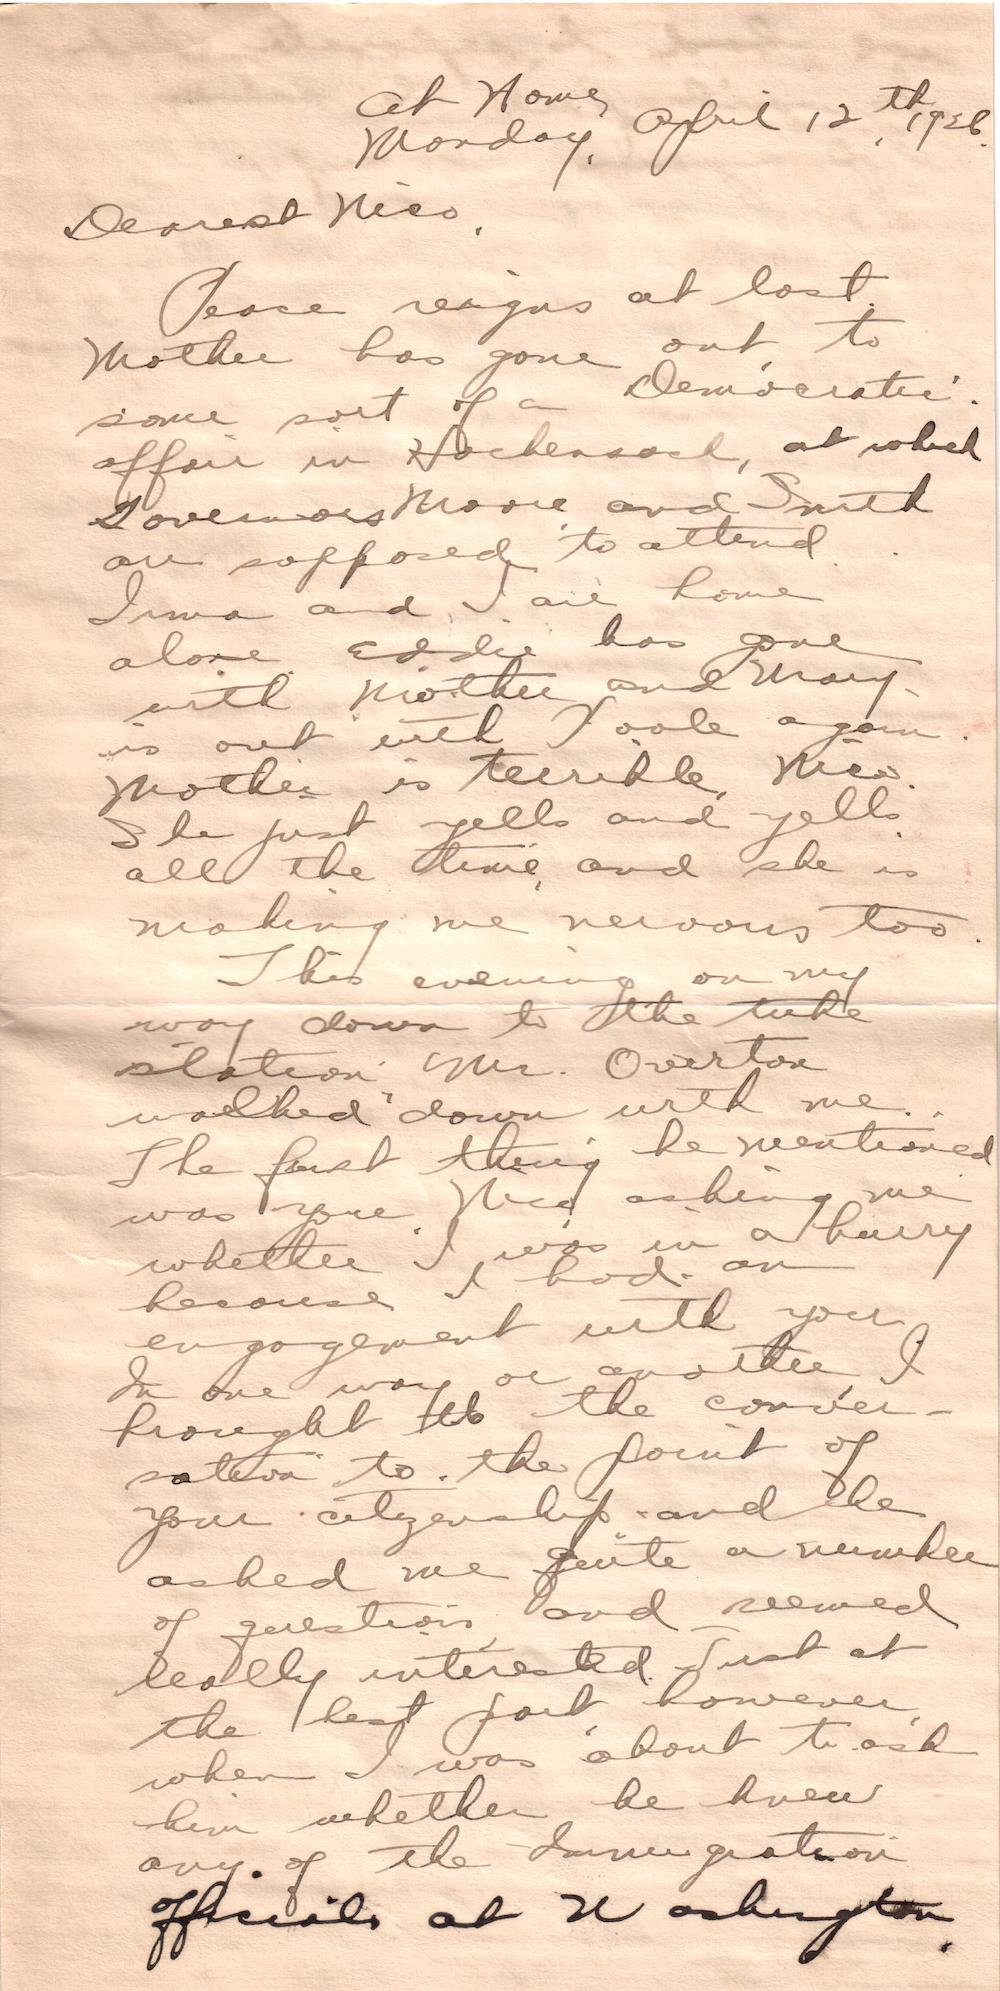 At Home,
Monday, April 12th, 1926.
Dearest Nico,
Peace reigns at last.
Mother has gone out, to
some sort of a Democratic
affair in Hackensack, at which
Governors Moore and Smith
are supposed to attend.
Irma and I are home
alone. Eddie has gone
with Mother and Mary
is out with Toole again.
Mother is terrible, Nico.
She just yells and yells
all the time, and she is
making me nervous too.
This evening on my
way down to the tube
station Mr. Overton
walked down with me.
The first thing he mentioned
was you, Nico, asking me
whether I was in a hurry
because I had an
engagement with you.
In one way or another I
brought the conver-
sation to the point of
your citizenship and he
asked me quite a number
of questions, and seemed
really interested. Just at
the best part however,
when I was about to ask
him whether he knew
any of the Immigration
officials at Washington,